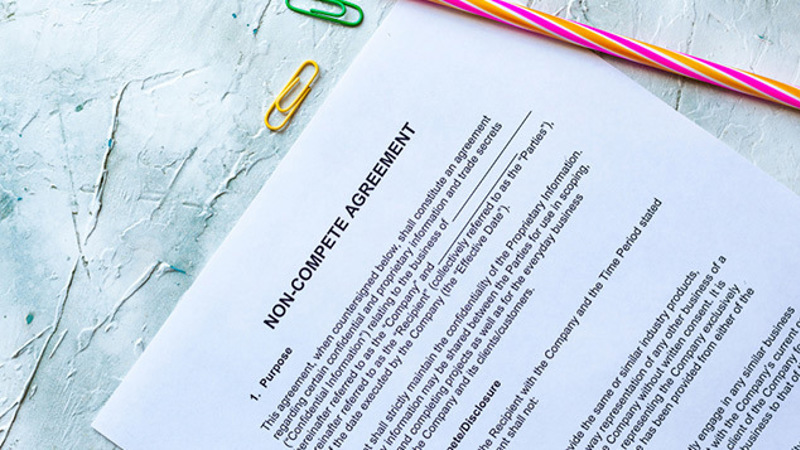 NON-COMPETE AGREEMENT
1. Purpose
This agreement, when countersigned below, shall constitute an agreement
regarding certain confidential and proprietary information and trade secrets
("Confidential Information") relating to the business of
hereinafter referred to as the "Company" and
reinafter referred to as the "Recipient" (collectively referred to as the "Parties"),
f the date executed by the Company (the "Effective Date").
nt shall strictly maintain the confidentiality of the Proprietary Information.
y information may be shared between the Parties for use in scoping,
and completing projects as well as for the everyday business
the Company and its clients/customers.
pete/Disclosure
the Recipient with the Company and the Time Period stated
ent shall not:
vide the same or similar industry products,
way representation of any other business of a
e Company without written consent. It is
representing the Company exclusively
e has been provided from either of the
tly engage in any similar business
d with the Company's current
client of the Company
business to that of